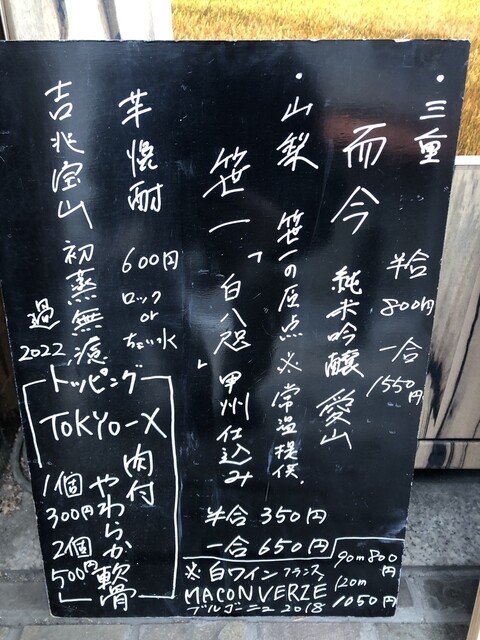 ・三重
而今
純米吟醸 愛山
半合
800円
一合
1550円
・山梨 笹一の原点 ※常温提供.
笹一 「白八咫」 甲州仕込み
半合 350円
一合 650円
芋焼酎
600円
ロック
or
ちょい水
吉兆宝山 初蒸無濾過
2022
トッピング
TOKYO-X
肉付
やわらか軟骨
1個
300円
2個
500円
※白ワイン フランス
MACON VERZE
ブルゴーニュ 2018
90m 800円
120m
1050円